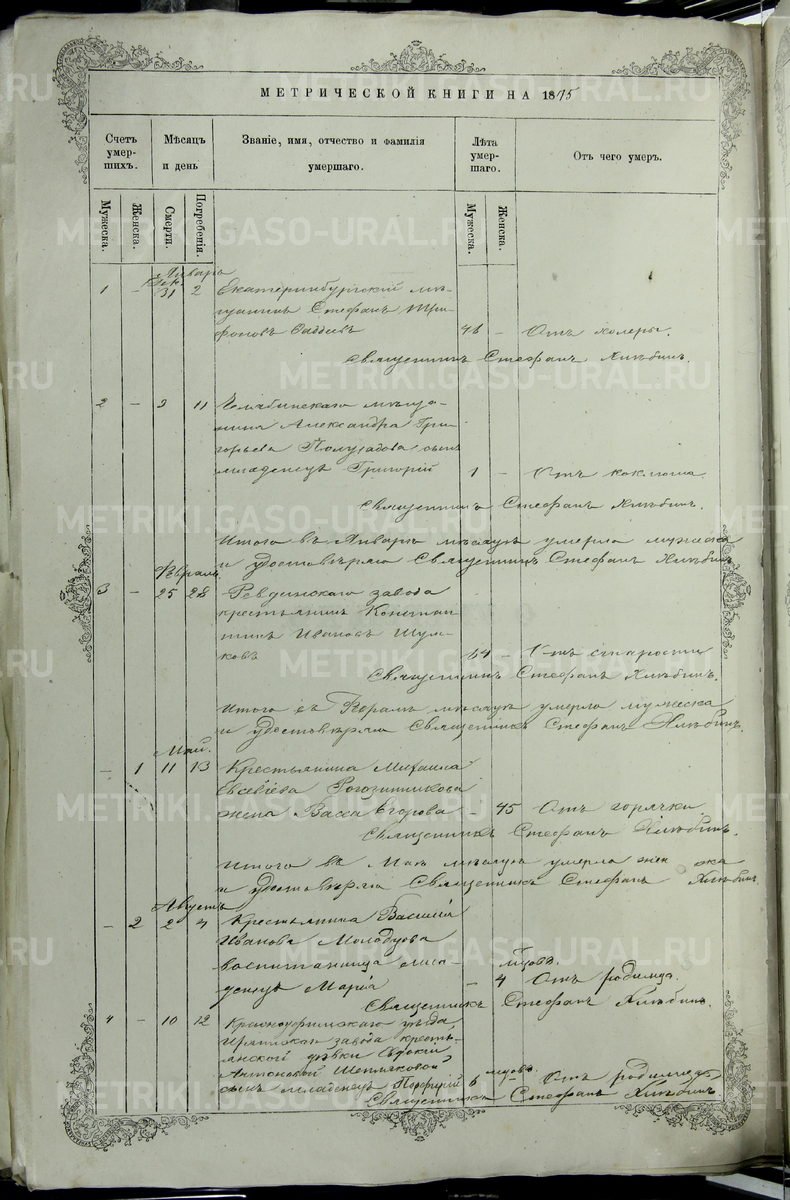 МЕТРИЧЕСКОЙ КНИГИ НА 1875
Счетъ умер-шихъ.
Мѣсяцъ и день
Званіе, имя, отчество и фамилія умершаго.
Лѣта умер-шаго.
Отъ чего умеръ.
Мужеска.
Женска.
Смерти.
Погребенія.
Мужеска.
Женска.
Январь
Дек.
1 - 31 2 Екатеринбургскій мѣ-
щанинъ Стефанъ Три-
фоновъ 46 - Отъ холеры.
Священникъ Стефанъ Хлѣбинъ.
2 - 9 11 Челябинскаго мѣща-
нина Александра Гри-
горьева Полуядова сынъ
младенецъ Григорій 1 - Отъ коклюша
Священникъ Стефанъ Хлѣбинъ.
Итого въ Январѣ мѣсяцѣ умерло мужеска
и удостовѣряю Священникъ Стефанъ Хлѣбинъ
Февраль
3 - 25 28 Ревдинскаго завода
крестьянинъ Констан-
тинъ Ивановъ Шум-
ковъ 64 - Отъ старости
Священникъ Стефанъ Хлѣбинъ.
Итого въ мѣсяцѣ умерло мужеска
и удостовѣряю Священникъ Стефанъ Хлѣбинъ.
Май.
- 1 11 13 Крестьянина Михаила
Евсевіева Рогозинникова
жена Васса Егорова - 45 Отъ горячки
Священникъ Стефанъ Хлѣбинъ.
Итого въ Маѣ мѣсяцѣ умерло жен ска
и удостовѣряю Священникъ Стефанъ Хлѣбинъ
Августъ
- 2 2 4 Крестьянина Василія
Иванова Молодцова
воспитанница мла-
денецъ Марія - 4 мцовъ. Отъ родимца.
Священникъ Стефанъ Хлѣбинъ.
4 - 10 12 Красноуфимскаго уѣзда,
завода кресть-
янской дѣвки Евдокіи
Антоновой Шепляковой
сынъ младенецъ Порфирій 6 мцовъ - Отъ родимца
Священникъ Стефанъ Хлѣбинъ
METRIKI.GASO-URAL.RU